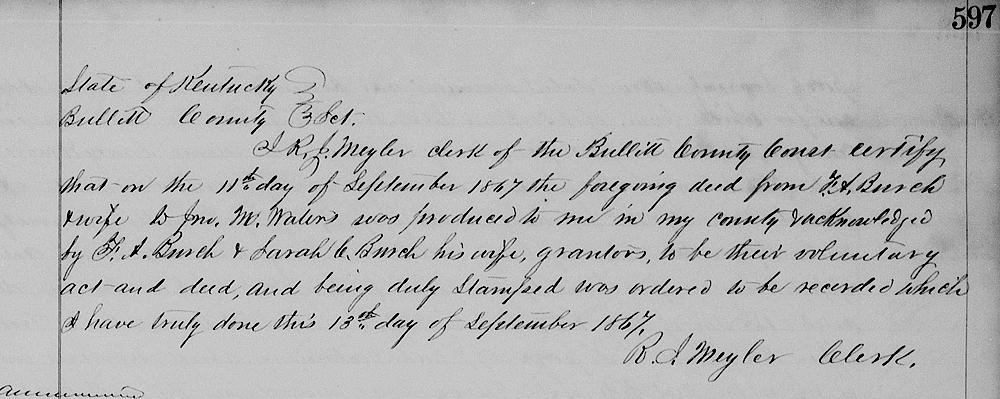 597
State of Kentucky }
Bullitt County } Sct.
I R. J. Meyler clerk of the Bullitt County Court certify
that on the 11th day of September 1867 the foregoing deed from F. A. Burch
& wife to Jno. M. Waters was produced to me in my county & acknowledged
by F. A. Burch & Sarah C. Burch his wife, grantors, to be their voluntary
act and deed, and being duly Stamped was ordered to be recorded which
I have truly done this 13th day of September 1867.
R. J. Meyler Clerk.